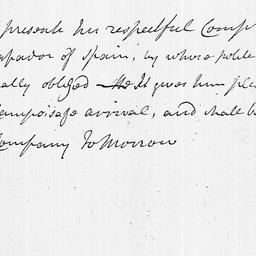 presents his respectful Comp
of Spain, by whose polite
ally obliged It gives him ple
safe arrival, and shall b
Company To Morrow